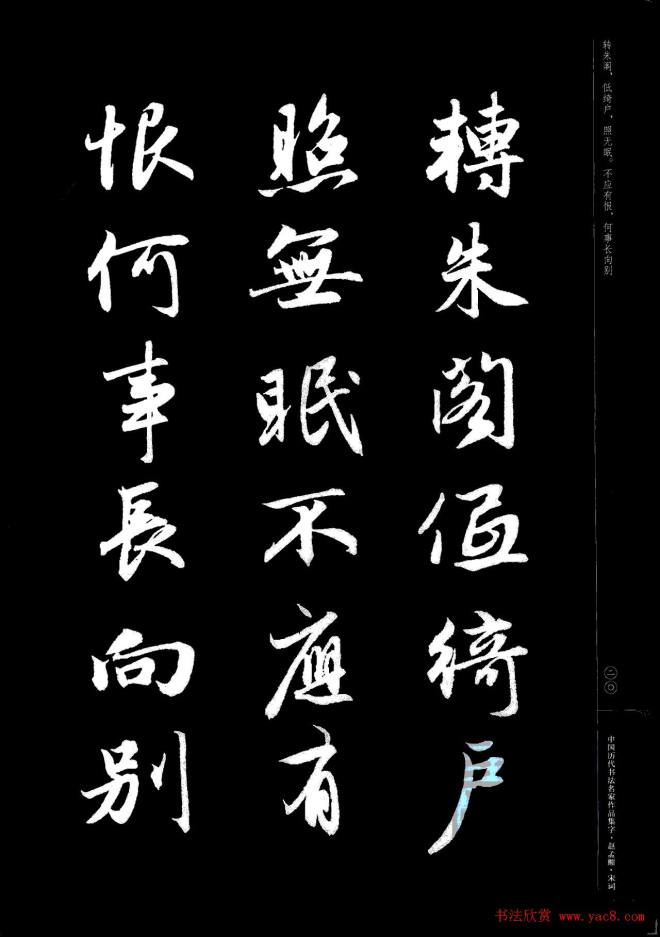 轉朱閣低綺戶
照無眠不應有
恨何事長向別
转朱阁，低绮户，照无眠。不应有恨，何事长向别
二〇
中国历代书法名家作品集字·赵孟頫·宋词
书法欣赏 www.yac8.com